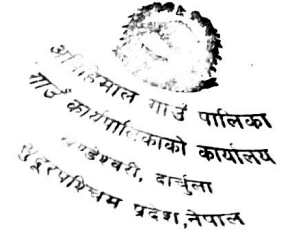 अपिहिमाल गाउँ पालिका
गाउँ कार्यपालिकाको कार्यालय
दार्चुला
सुदूरपश्चिम प्रदेश,नेपाल